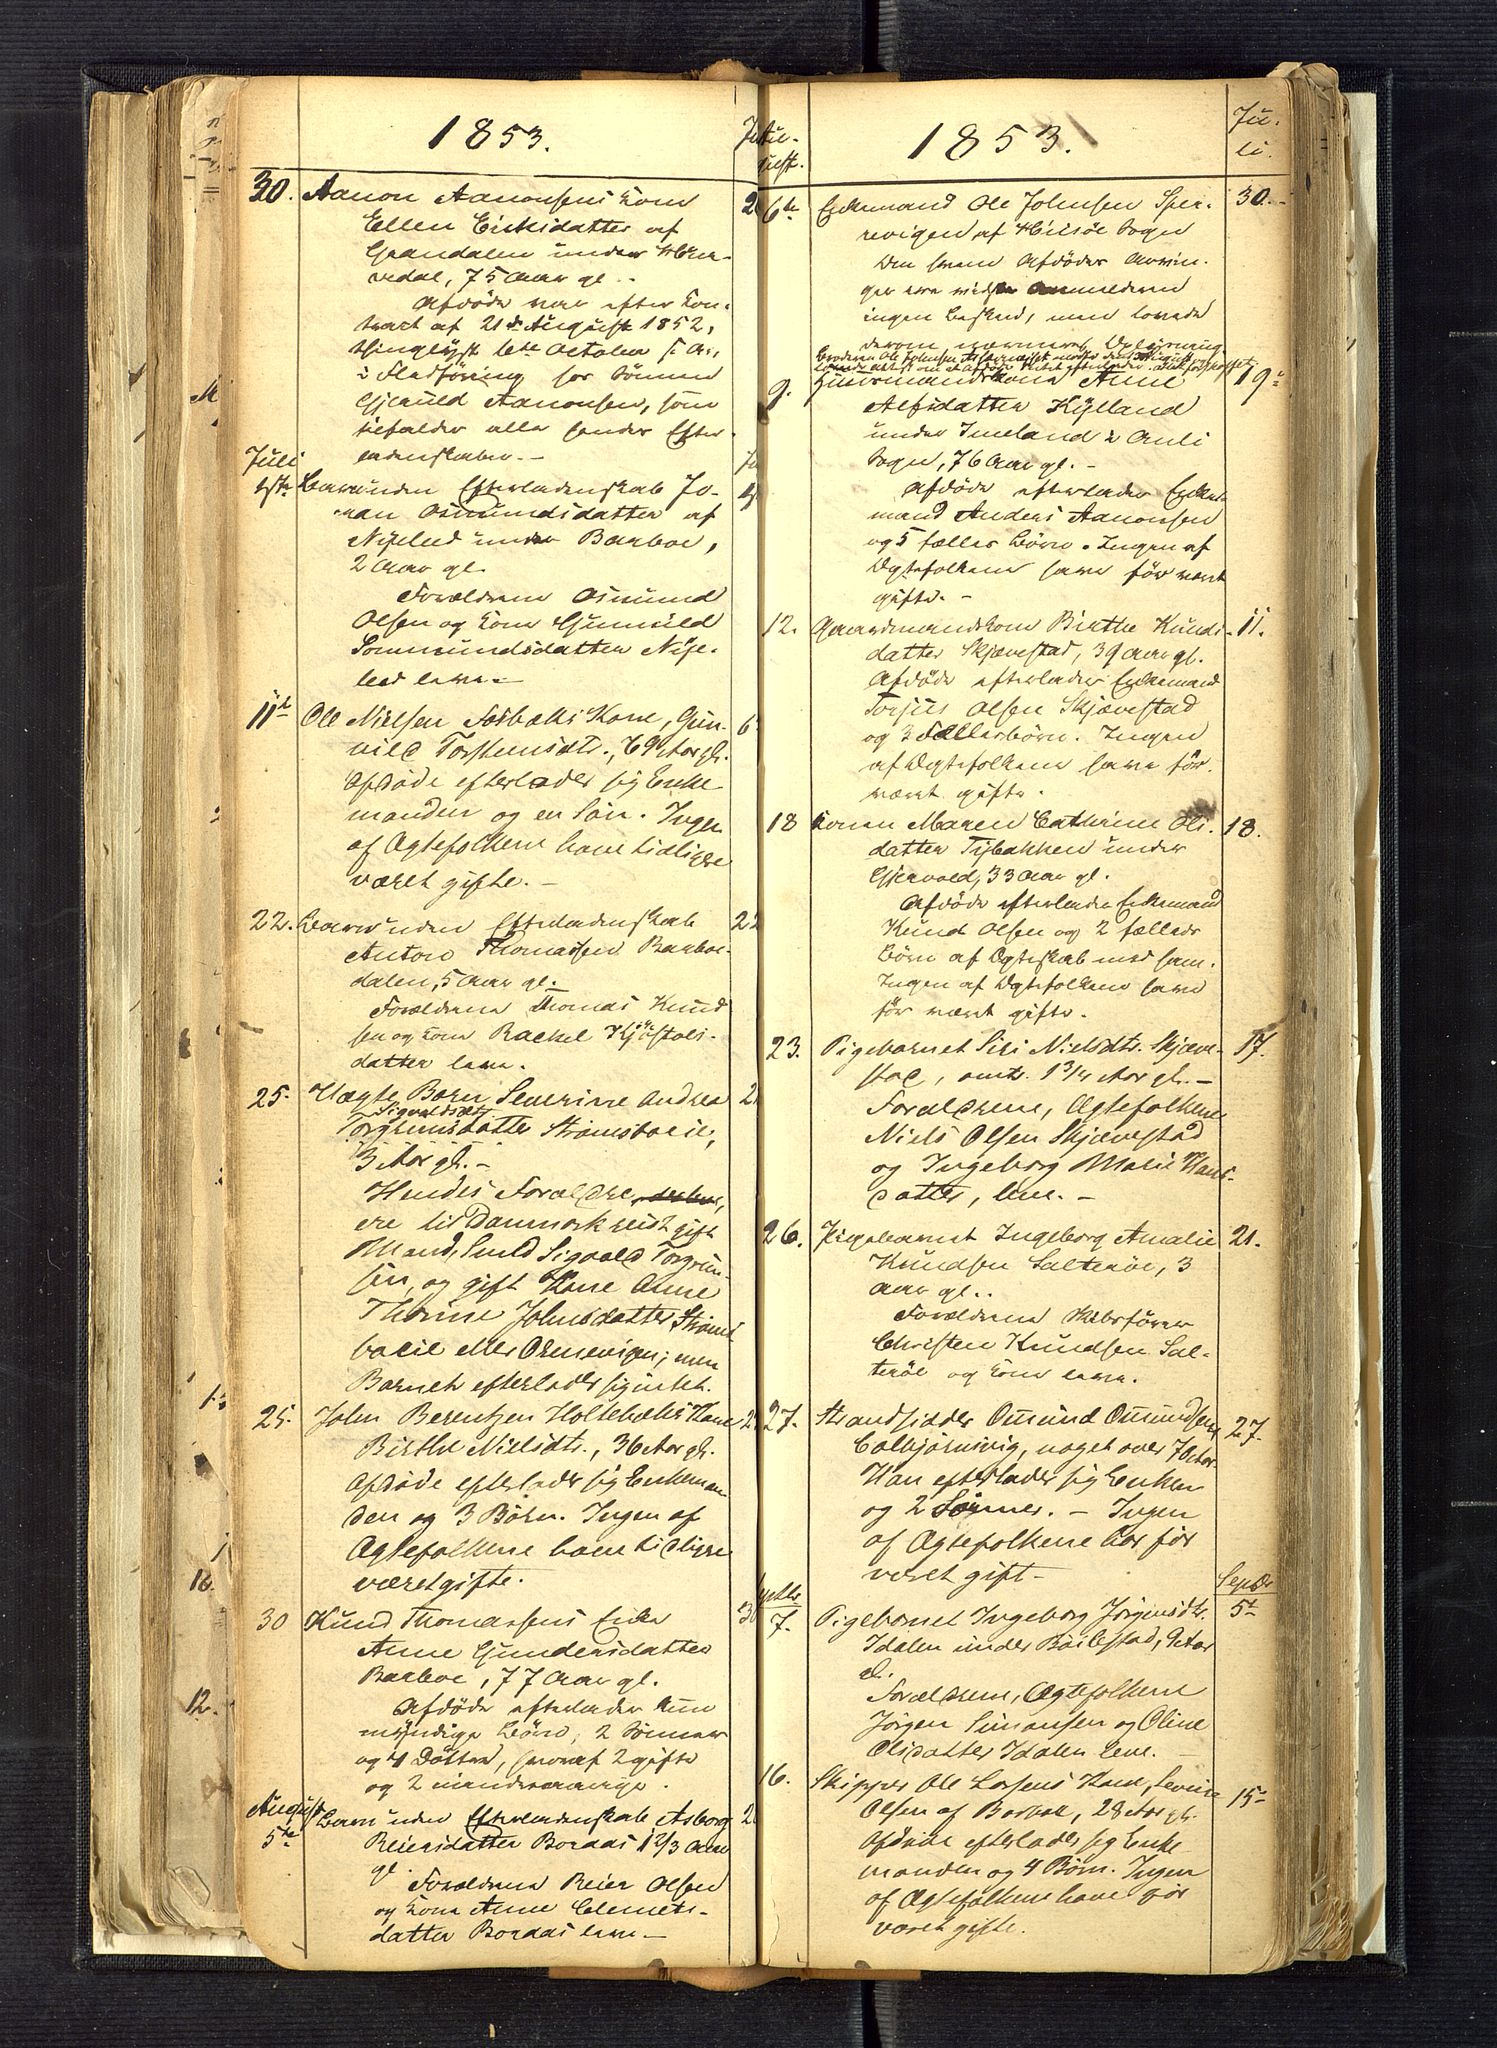 1853.
30. Aanon Aanonsens Kone
Ellen Eriksdatter af
Grandalen under
75 Aar gl.
Afdøde var efter Kon-
trakt af 21de August 1852,
thinglyst 6te October s. A.,
i Fladføring hos Sønnen
Gjeruld Aanonsen, som
tilfalder alle hendes Efter-
ladenskaber. -
Juli
1ste Barn uden Efterladenskab Jo-
han Osmundsdatter af
under Barboe,
2 Aar gl.
Forældrene Osmund
Olsen og Kone Gunnild
Sommundsdatter
leve. -
11te Ole Nielsen Fosbæks Kone, Gun-
nild Torstensdtr., 69 Aar gl.
Afdøde efterlader sig Enke-
manden og en Søn. Ingen
af Ægtefolkene have tidligere
været gifte. -
22. Barn uden Efterladenskab
Anton Thomassen Barboe-
dalen, 5 Aar gl.
Forældrene Thomas Knud
sen og Kone Rachel
datter leve.
25. Uægte Barn Severine Andrea
Sigvaldsdtr
Torgrimsdatter Strømsboeie,
3 Aar gl. -
Hendes Forældre
ere til Danmark reist gift
Mand, Smed Sigvald Torgrim-
sen, og gift Kone Anne
Thorine Johnsdatter Strøms
boeie eller men
Barnet efterlader sig intet.
25. John Berentzen Holtebæks Kone
Birthe Nielsdtr., 36 Aar gl.
Afdøde efterlader sig Enkeman-
den og 3 Børn. Ingen af
Ægtefolkene have tidligere
været gifte.
30 Knud Thomassens Enke
Anne Gundersdatter
Barboe, 77 Aar gl.
Afdøde efterlader kun
myndige Børn, 2 Sønner
og 4 Døttre, hvoraf 2 gifte
og 2 mindreaarige.
August
5te Barn uden Efterladenskab Asborg
Reiersdatter Bordaas 1 2/3 Aar
gl.
Forældrene Reier Olsen
og Kone Anne Clemets-
datter Bordaas leve. -
1853.
Ju-
li.
6te Enkemand Ole Johnsen Sper-
revigen af Hisøe Sogn 30.
Om hvem Afdødes Arvin-
ger ere vidste Anmelderen
ingen Besked, men lovede
derom nærmere Oplysning
9. Huusmandskone Anne 9
Alfsdatter Kylland
under Imeland i
Sogn, 76 Aar gl. -
Afdøde efterlader Enke-
mand Anders Aanonsen
og 5 fælles Børn. Ingen af
Ægtefolkene have før været
gifte. -
12. Gaardmandskone Birthe Knuds- 11.
datter Skjævestad, 39 Aar gl.
Afdøde efterlader Enkemand
Torjus Olsen Skjævestad
og 3 Fællesbørn. Ingen
af Ægtefolkene have før
været gifte.
18 Konen Maren Cathrine Ols- 18.
datter Tybakken under
Gjervold, 33 Aar gl.
Afdøde efterlader Enkemand
Knud Olsen og 2 fælleds
Børn af Ægteskab med ham.
Ingen af Ægtefolkene have
før været gifte.
23. Pigebarnet Siri Nielsdtr. Skjæve- 17.
stad, omtr. 1 3/4 Aar gl. -
Forældrene, Ægtefolkene
Niels Olsen Skjævestad
og Ingeborg Marie Hans-
datter, leve. -
26. Pigebarnet Ingeborg Amalie 21.
Knudsen Salterøe, 3
Aar gl.
Forældrene Skibsfører
Christen Knudsen Sal-
terøe og Kone leve.
27. Strandsidder Omund Omundsen 27.
Colbjørnsvig, noget over 70 Aar.
Han efterlader sig Enken
og 2 Sønner. - Ingen
af Ægtefolkene har før
været gift -
Septbr
7. Pigebarnet Ingeborg Jørgensdtr. 5te
Idalen under Bøilestad, 9 Aar
gl.
Forældrene, Ægtefolkene
Jørgen Simonsen og Oline
Olsdatter Idalen leve. -
16. Skipper Ole Larsens Kone, Sevine 15
Olsen af Barboe, 28 Aar gl.
Afdøde efterlader sig Enke-
manden og 4 Børn. Ingen
af Ægtefolkene have før
været gifte.